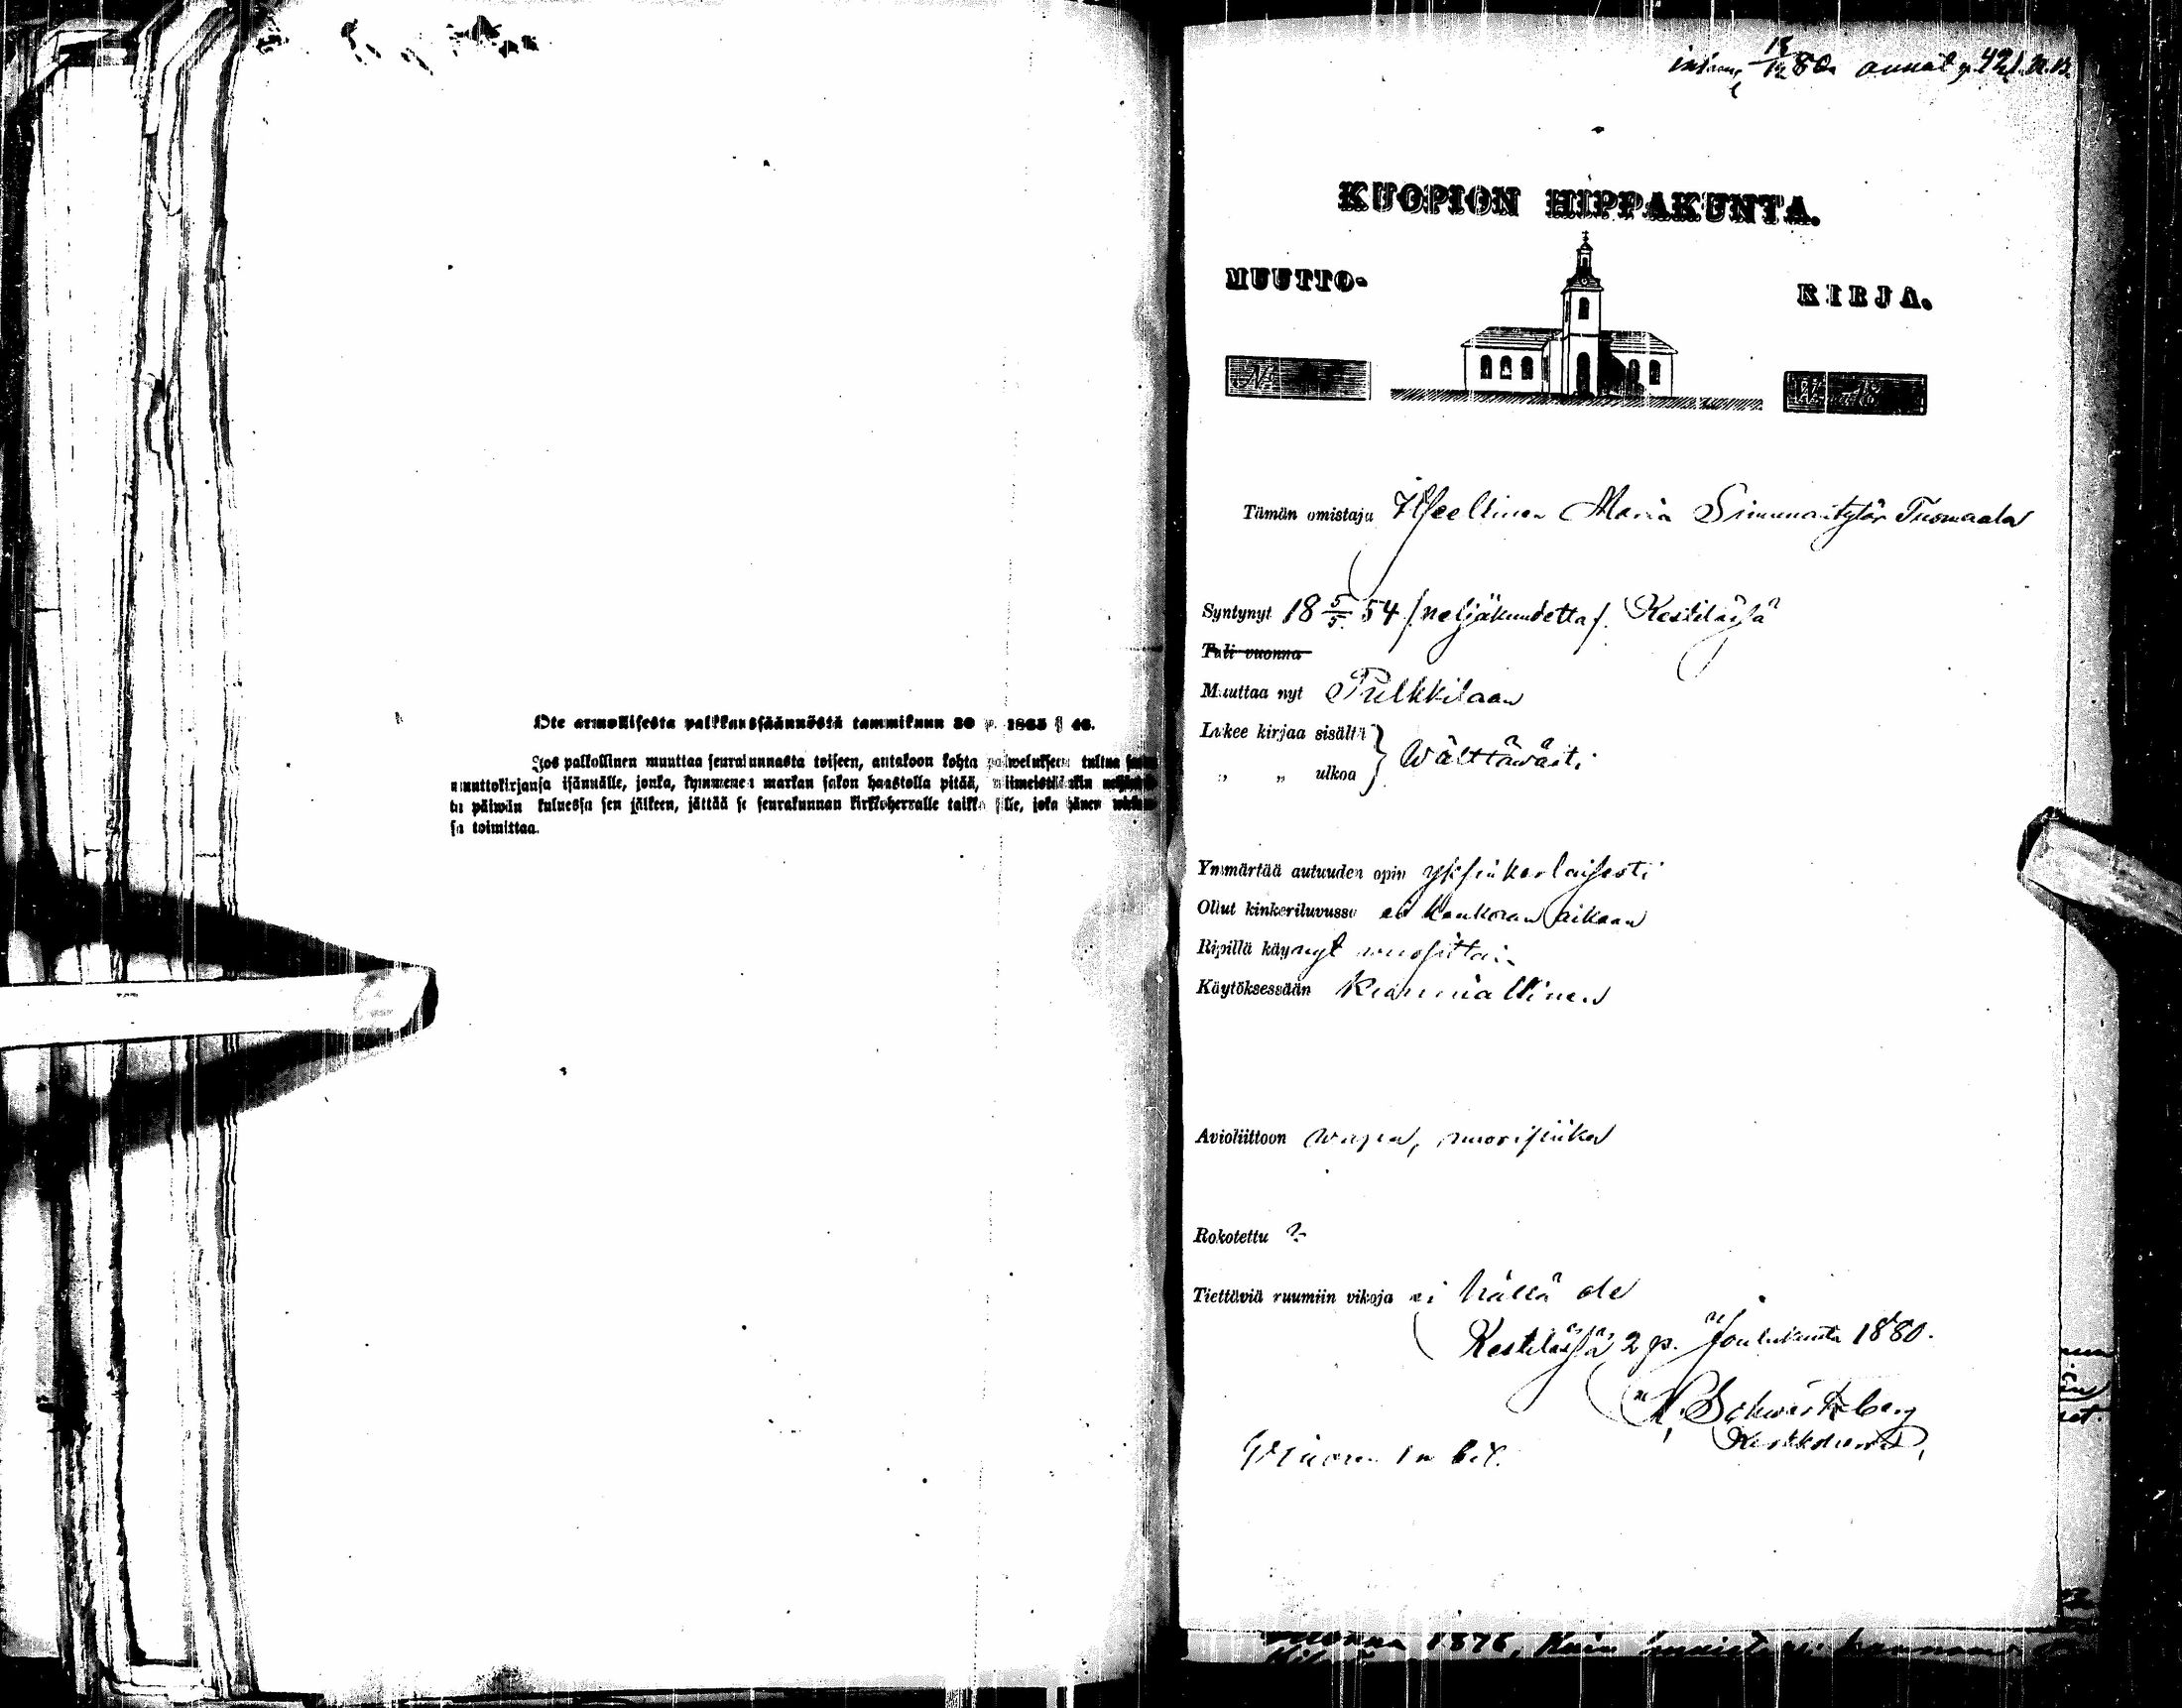 Ote armollisesta palkkaussäännöstä tammikuun 30 p. 1865 § 46.
Jos palkollinen muuttaa seurakunnasta toiseen, antakoon kohta palwelukseen tultua
muuttokirjansa isännälle, jonka, kymmenen markan sakon haastolla pitää, wiimeistäänkin
päiwän kuluessa sen jälkeen, jättää se seurakunnan kirkkoherralle taikka sille, joka hänen
sa toimittaa.
80 annal p. 421.
KUOPION HIPPAKUNTA.
MUUTTO-
KIRJA.
N:o
Tämän omistaja Maria Simunantytär Tuomaala
Syntynyt 18 5/5 54 /neljäkuudetta/. Kestilässä
Tuli vuonna
Muuttaa nyt Pulkkilaan
Lukee kirjaa sisältä
„ „ ulkoa } Wälttäwästi
Ymmärtää autuuden opin yksinkerlaisesti
Ollut kinkeriluvussa ei kaukoran aikaan
Ripillä käynyt wuosittain
Käytöksessään kunniallinen
Avioliittoon wapaa, nuoripiika
Rokotettu ?
Tiettäviä ruumiin vikoja ei hällä ole
Kestilässä 2 p. Joulukuuta 1880.
Schwartzberg
Kirkkoherra
1876, Kuin